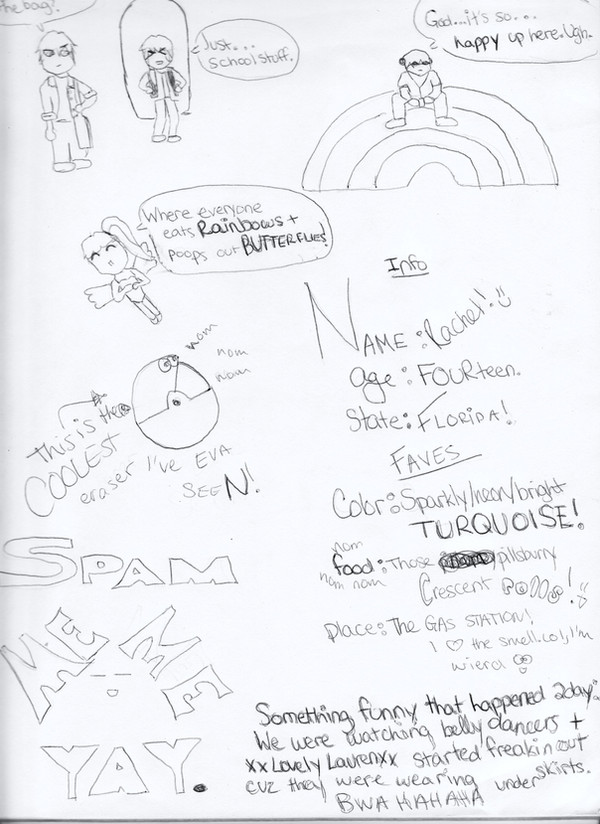 the bag?
Just....
school stuff.
God...it's so...
happy up here. Ugh.
Where everyone
eats RAINBOWS +
poops out BUTTERFLIES!
nom
nom
nom
This is the
COOLEST
eraser I've EVA
SEEN!
SPAM
ME ME
YAY.
Info
NAME: Rachel!
age: FOURteen.
State: FLORIDA!
FAVES
Color: Sparkly/neon/bright
TURQUOISE!
nom
food: Those pillsburry
nom nom
Crescent Rolls!
Place: THE GAS STATION!
I the smell. Lol, I'm
wierd
Something funny that happened 2day:
We were watching belly dancers +
xx Lovely Laurenxx started freakin out
cuz they were wearing under skirts.
BWA HAHAHA